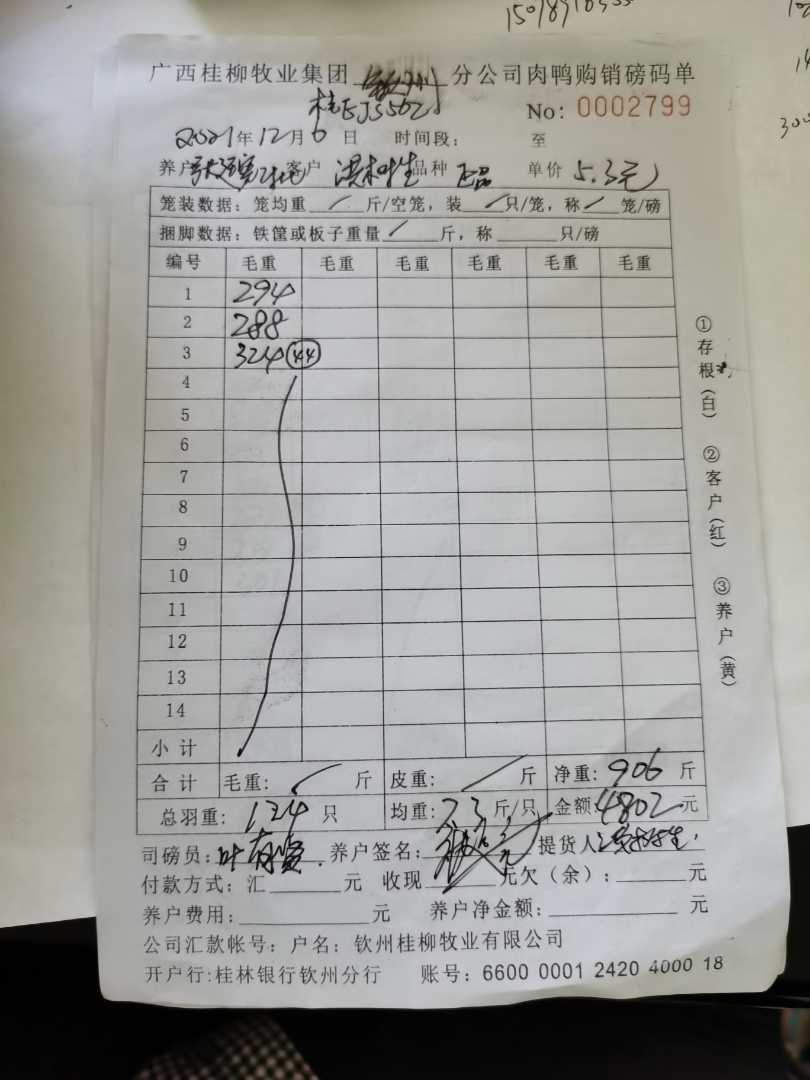 广西桂柳牧业集团 钦州 分公司肉鸭购销磅码单
桂EJS562
No: 0002799
2021年12月6日 时间段: 至
养户 客户 洪树生 品种 正品 单价 5.3元
笼装数据: 笼均重 / 斤/空笼, 装 / 只/笼, 称 / 笼/磅
捆脚数据: 铁筐或板子重量 / 斤, 称 只/磅
编号 毛重 毛重 毛重 毛重 毛重 毛重
1 294
2 288
3 324 44
4
5
6
7
8
9
10
11
12
13
14
小计
合计 毛重: 斤 皮重: 斤 净重: 906 斤
总羽重: 124 只 均重: 7.3 斤/只 金额: 4802 元
司磅员: 叶 养户签名: 提货人 洪树生
付款方式: 汇 元 收现 元欠(余): 元
养户费用: 元 养户净金额: 元
公司汇款帐号: 户名: 钦州桂柳牧业有限公司
开户行:桂林银行钦州分行 账号: 6600 0001 2420 4000 18
①存根(白) ②客户(红) ③养户(黄)